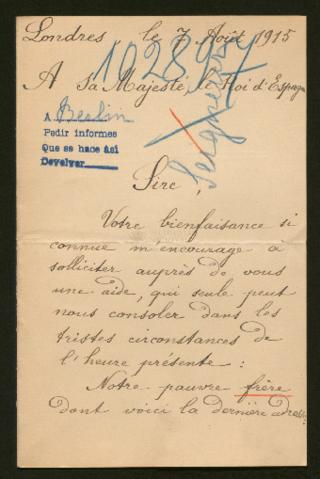 Londres, le 7 Août 1915
102894
A Sa Majesté, le Roi d'Espagne
A Berlin
Pedir informes
Que se hace así
Devolver
Sire,
Votre bienfaisance si
connue m'encourage à
solliciter auprès de vous
une aide, qui seule peut
nous consoler dans les
tristes circonstances de
l'heure présente :
Notre pauvre frère
dont voici la dernière adresse